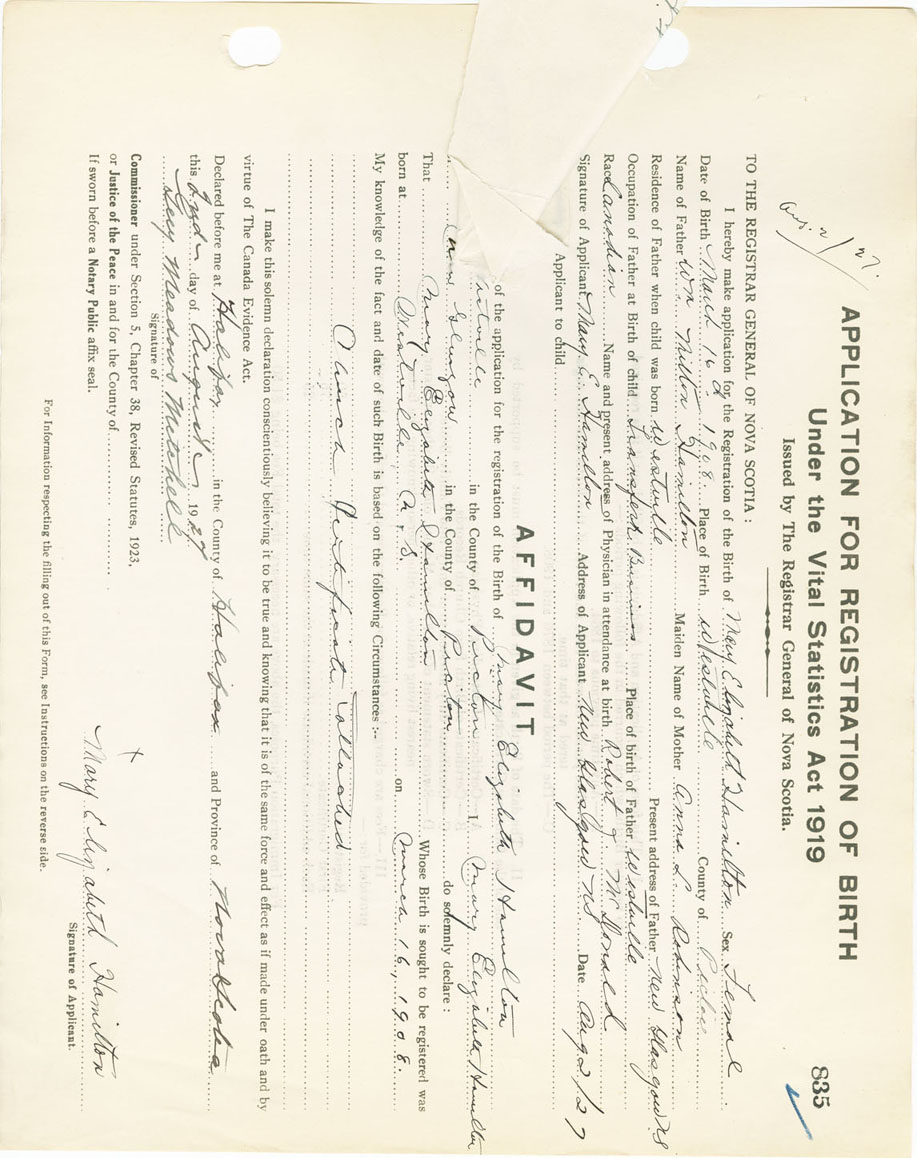 APPLICATION FOR REGISTRATION OF BIRTH
835
Under the Vital Statistics Act 1919
Issued by The Registrar General of Nova Scotia.
Aug. 2/27.
TO THE REGISTRAR GENERAL OF NOVA SCOTIA:
I hereby make application for the Registration of the Birth of Mary Elizabeth Hamilton Sex Female
Date of Birth March 16 1908 Place of Birth Westville County of Pictou
Name of Father Wm Hamilton Maiden Name of Mother Anna L. Robinson
Residence of Father when child was born Westville Present address of Father New Glasgow NS
Occupation of Father at Birth of child Transfer Business Place of birth of Father Westville
Race Canadian Name and present address of Physician in attendance at birth Robert McDonald
Signature of Applicant Mary E. Hamilton Address of Applicant New Glasgow NS Date Aug 2/27
Applicant to child
AFFIDAVIT
of the application for the registration of the Birth of Mary Elizabeth Hamilton
in the County of Pictou I, Mary Elizabeth Hamilton
New Glasgow in the County of Pictou do solemnly declare:
That Mary Elizabeth Hamilton Whose Birth is sought to be registered was
born at Westville N.S. on March 16, 1908.
My knowledge of the fact and date of such Birth is based on the following Circumstances:-
Church Certificate attached
I make this solemn declaration conscientiously believing it to be true and knowing that it is of the same force and effect as if made under oath and by
virtue of The Canada Evidence Act.
Declared before me at Halifax in the County of Halifax and Province of Nova Scotia
this 2nd day of August 1927
Meadows Mitchell
Signature of
x
Mary Elizabeth Hamilton
Signature of Applicant.
Commissioner under Section 5, Chapter 38, Revised Statutes, 1923.
or Justice of the Peace in and for the County of
If sworn before a Notary Public affix seal.
For Information respecting the filling out of this Form, see Instructions on the reverse side.